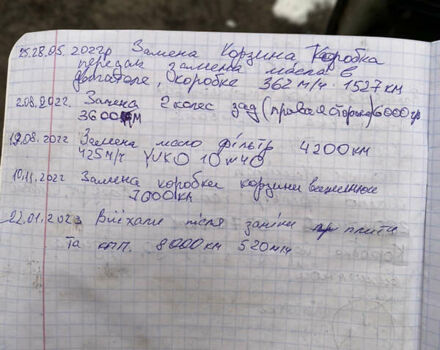 25.28.05.2022г Замена Корзина Коробка
передач замена масла в
двигателе, коробке 362 м/ч 1527 км
2.08.2022г. Замена 2 колес зад (правая сторона) 6000 гр
3600 км
12.08.2022г Замена масло фільтр 4200 км
425 м/ч YUKO 10w40
10.11.2022 Замена коробка корзини
7000 км
22.01.2023 Виїхали після заміни плити
Та кпп. 8000 км 520 м/ч